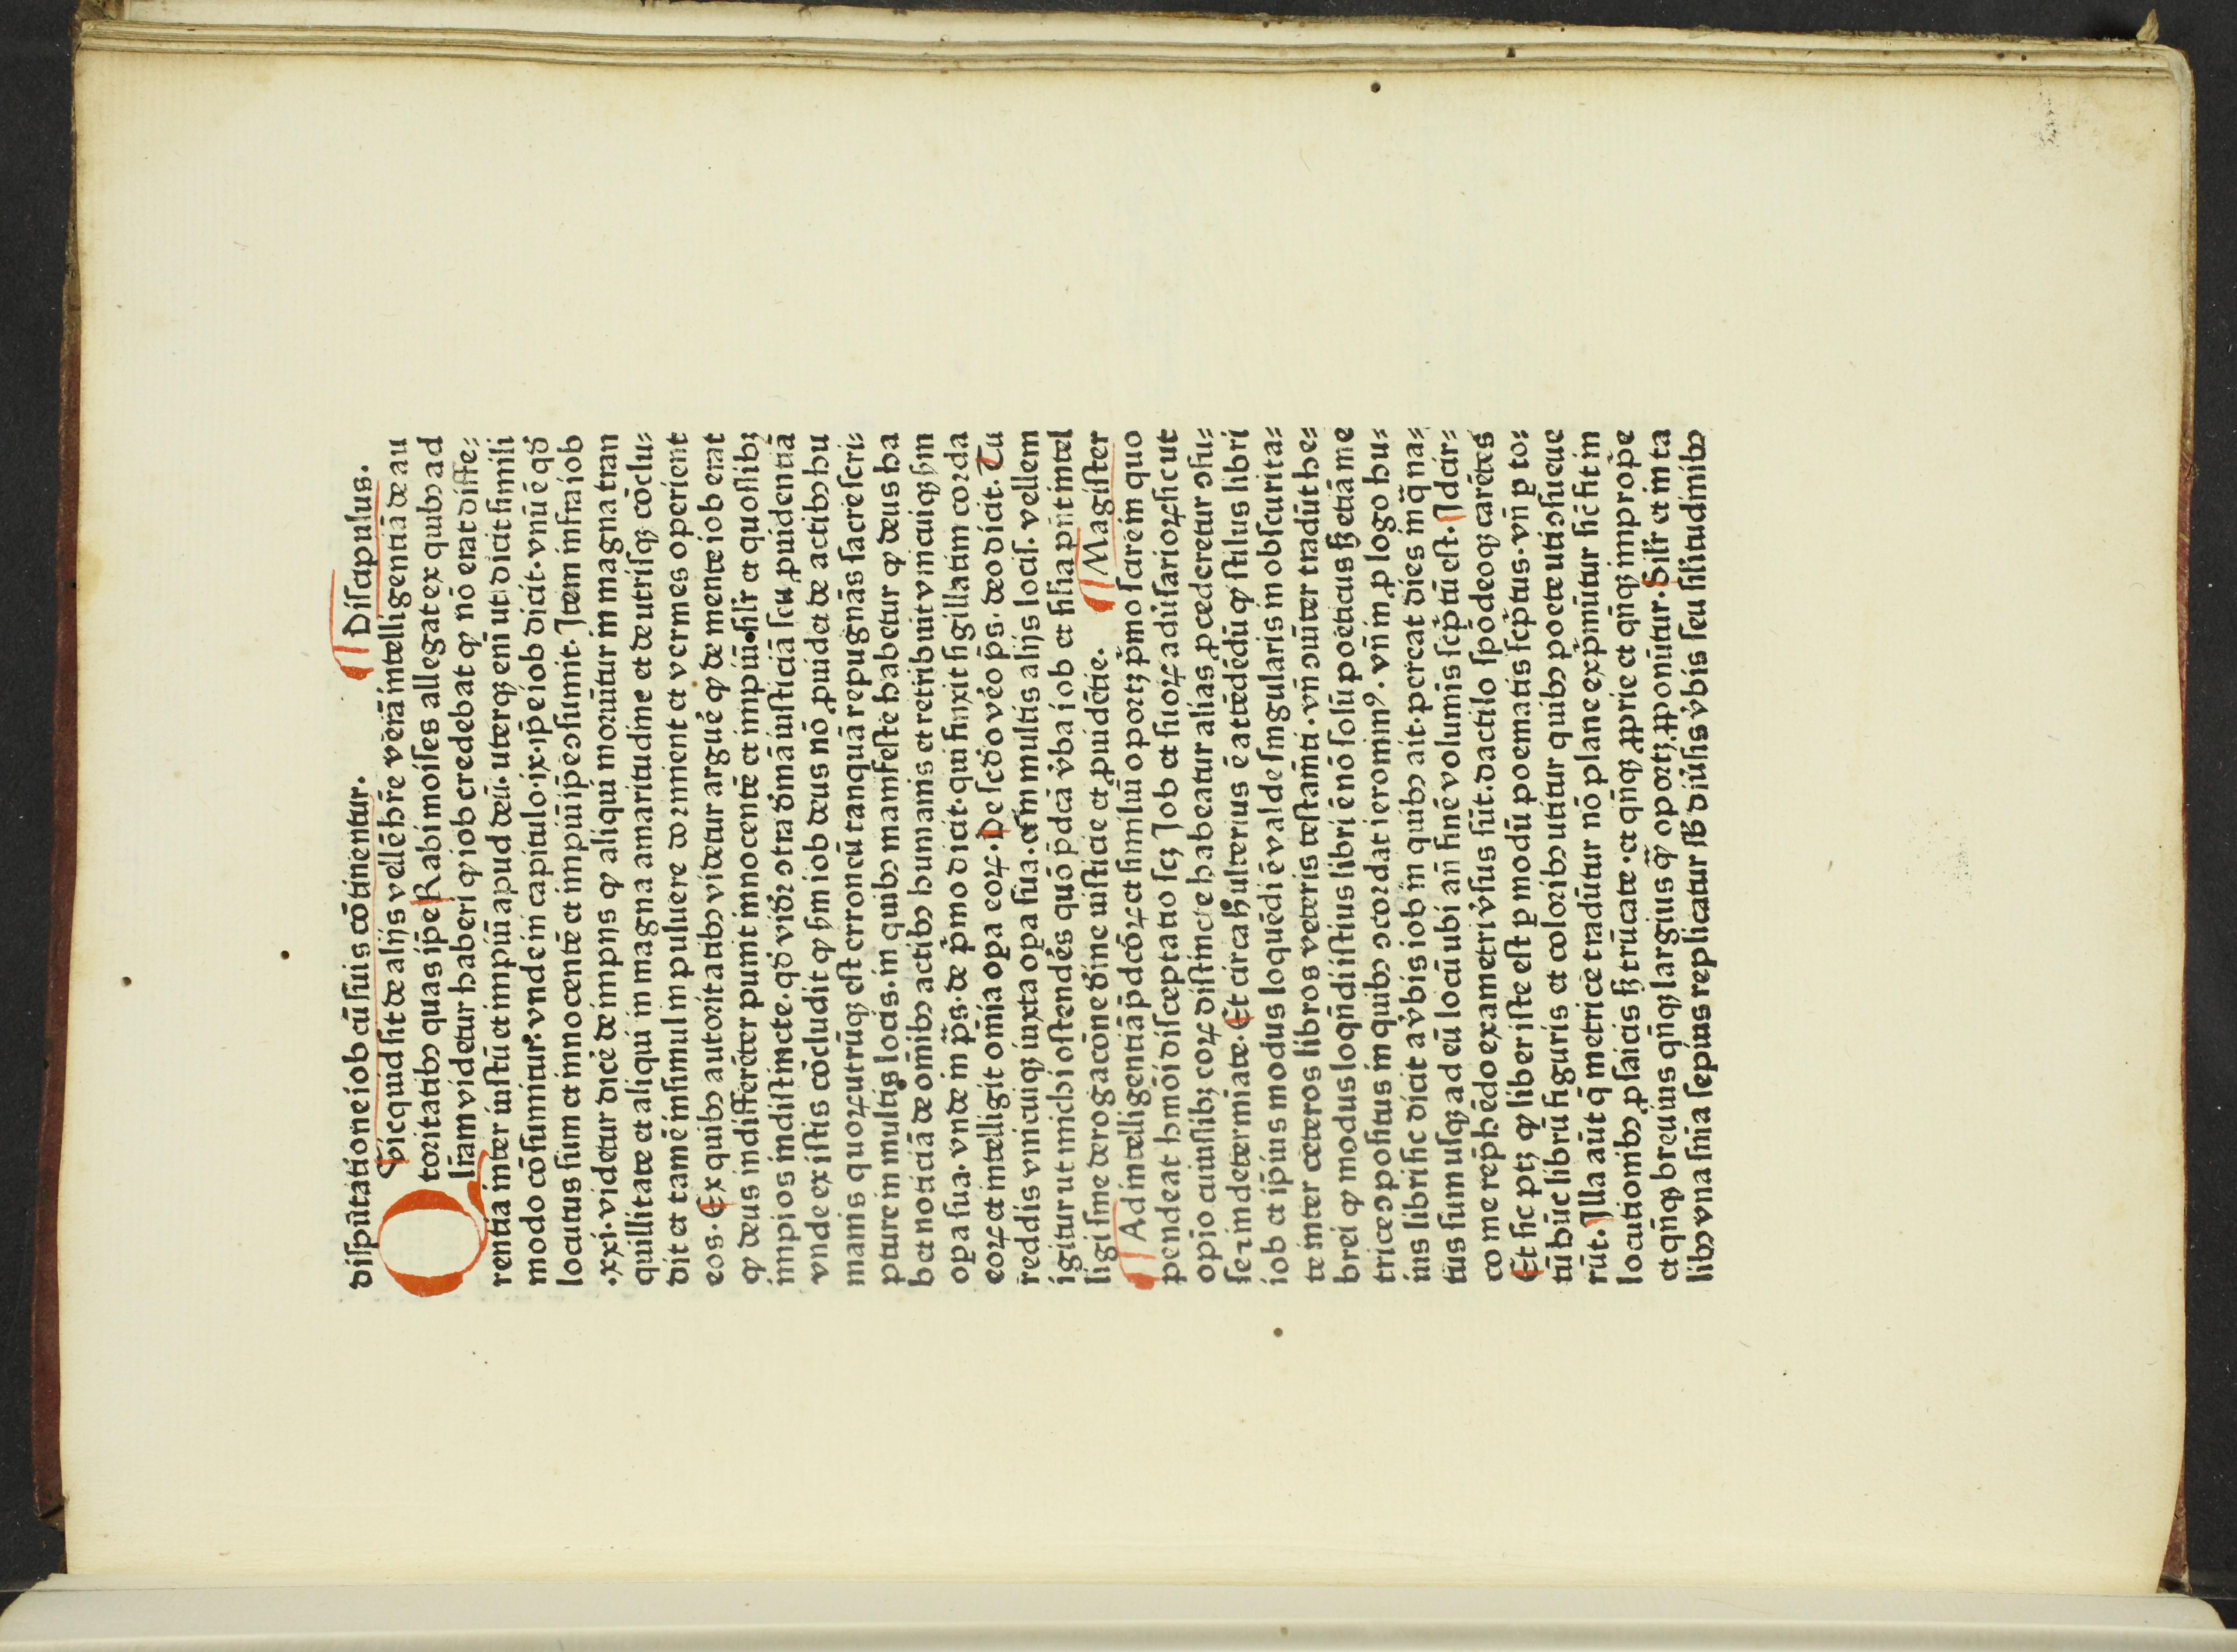 diſputatione iob cū ſuis cōtinentur. ¶ Diſcipulus.
Quicquid ſit de alijs vellē hr̄e verā intelligentiā de au
toritatibꝰ quas ip̄e Rabi moiſes allegat ex quibꝰ ad
lrām videtur haberi ꝙ iob credebat ꝙ nō erat diffe⸗
rentia inter iuſtū et impiū apud deū. uterqꝫ enī ut dicit ſimili
modo cōſumitur. vnde in capitulo .ix. ip̄e iob dicit. vnū ē qd̄
locutus ſum et innocentē et impiū ip̄e ꝯſumit. Item infra iob
.xxi. videtur dicē de impijs ꝙ aliqui moriūtur in magna tran
quillitate et aliqui in magna amaritudine et de utriſqꝫ cōclu⸗
dit et tamē inſimul in puluere dormient et vermes operient
eos. Ex quibꝰ autoritatibꝰ videtur arguē ꝙ de mente iob erat
ꝙ deus indifferēter punit innocentē et impiū. ſilr̄ et quoſlibꝫ
impios indiſtincte. qd̄ vid̄r ꝯtra d̄māʒ iuſticiā ſeu ꝓuidentiā
vnde ex iſtis cōcludit ꝙ ẜm iob deus nō ꝓuidet de actibꝰ hu
manis quoꝝ utrūqꝫ eſt erroneū tanquā repugnās ſacre ſcri⸗
pture in multis locis. in quibꝰ manifeſte habetur ꝙ deus ha
bet noticiā de om̄ibꝰ actibꝰ humanis et retribuit vnicuiqꝫ ẜm
opa ſua. vnde in p̄s. de p̄mo dicit. qui finxit ſigillatim corda
eoꝝ et intelligit om̄ia opa eoꝝ. De ſcd̄o vēo p̄s. deo dicit. Tu
reddis vnicuiqꝫ iuxta opa ſua. et in multis alijs locis. vellem
igitur ut michi oſtendēs quō p̄dcā v̄ba iob et ſilia pn̄t intel
ligi ſine derogacōne diīne iuſticie et ꝓuidētie. ¶ Magiſter
¶ Ad intelligentiā p̄dcōꝝ et ſimiliū oportꝫ p̄mo ſcire in quo
pendeat hmōi diſceptatio ſcꝫ Job et ſuoꝝ aduſarioꝝ ſic ut
opīo cuiuſlibꝫ eoꝝ diſtincte habeatur alias ꝓcederetur ꝯfu⸗
ſe et indetermīate. Et circa h̄ ulterius ē attēdēdū ꝙ ſtilus libri
iob et ip̄ius modus loquēdi ē valde ſingularis in obſcurita⸗
te inter ceteros libros veteris teſtam̄ti. vn̄ ꝯuīter tradūt he⸗
brei ꝙ modus loqn̄di iſtius libri ē nō ſolū poeticus ſꝫ etiā me
trice ꝯpoſitus in quibꝰ ꝯcordat ieronimꝰ. vn̄ in ꝓlogo hu⸗
ius libri ſic dicit a v̄bis iob in quibꝰ ait. pereat dies in q̄ na⸗
tus ſum uſqꝫ ad eū locū ubi an̄ finē volumīs ſcp̄tū eſt. Idcir⸗
co me rep̄hēdo exametri v̄ſus ſūt. dactilo ſpōdeoqꝫ carētes
Et ſic ptꝫ ꝙ liber iſte eſt ꝑ modū poematis ſcp̄tus. vn̄ ꝑ to⸗
tū hūc librū figuris et coloribꝰ utitur quibꝰ poete uti ꝯſueue
rūt. Illa aūt q̄ metrice tradūtur nō plane exp̄mūtur ſic fit in
locutionibꝰ ꝓſaicis ſꝫ trūcate. et qn̄qꝫ ꝓprie et qn̄qꝫ imp̄rope
et qn̄qꝫ breuius qn̄qꝫ largius ꝙ̄ oportꝫ ꝓponūtur. Silr̄ et in ta
libꝰ vna ſn̄ia ſepius replicatur ſb̄ diūſis v̄bis ſeu ſilitudinibꝰ